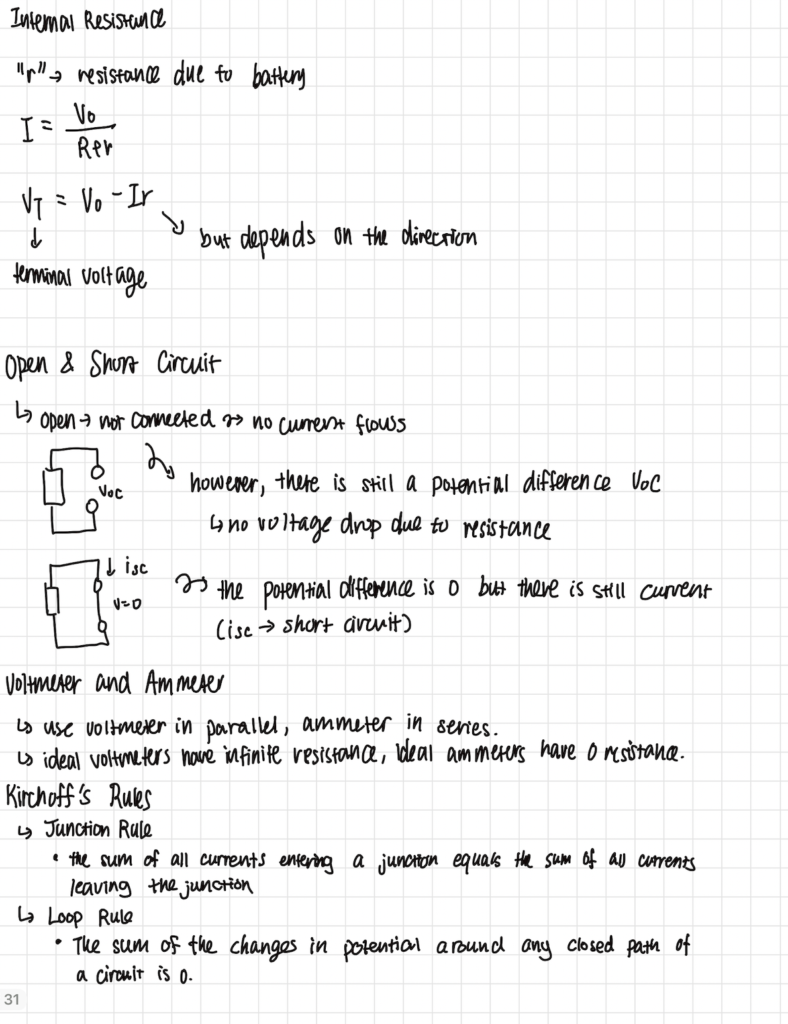 Internal Resistance
"r" → resistance due to battery
I = V₀ / R+r
V_T = V₀ - Ir
↓ ↳ but depends on the direction
terminal voltage
Open & Short Circuit
↳ open → not connected → no current flows
Voc
however, there is still a potential difference Voc
↳ no voltage drop due to resistance
↓ isc
V=0
→ the potential difference is 0 but there is still current
(isc → short circuit)
Voltmeter and Ammeter
↳ use voltmeter in parallel, ammeter in series.
↳ ideal voltmeters have infinite resistance, ideal ammeters have 0 resistance.
Kirchoff's Rules
↳ Junction Rule
• the sum of all currents entering a junction equals the sum of all currents
leaving the junction
↳ Loop Rule
• The sum of the changes in potential around any closed path of
a circuit is 0.
31